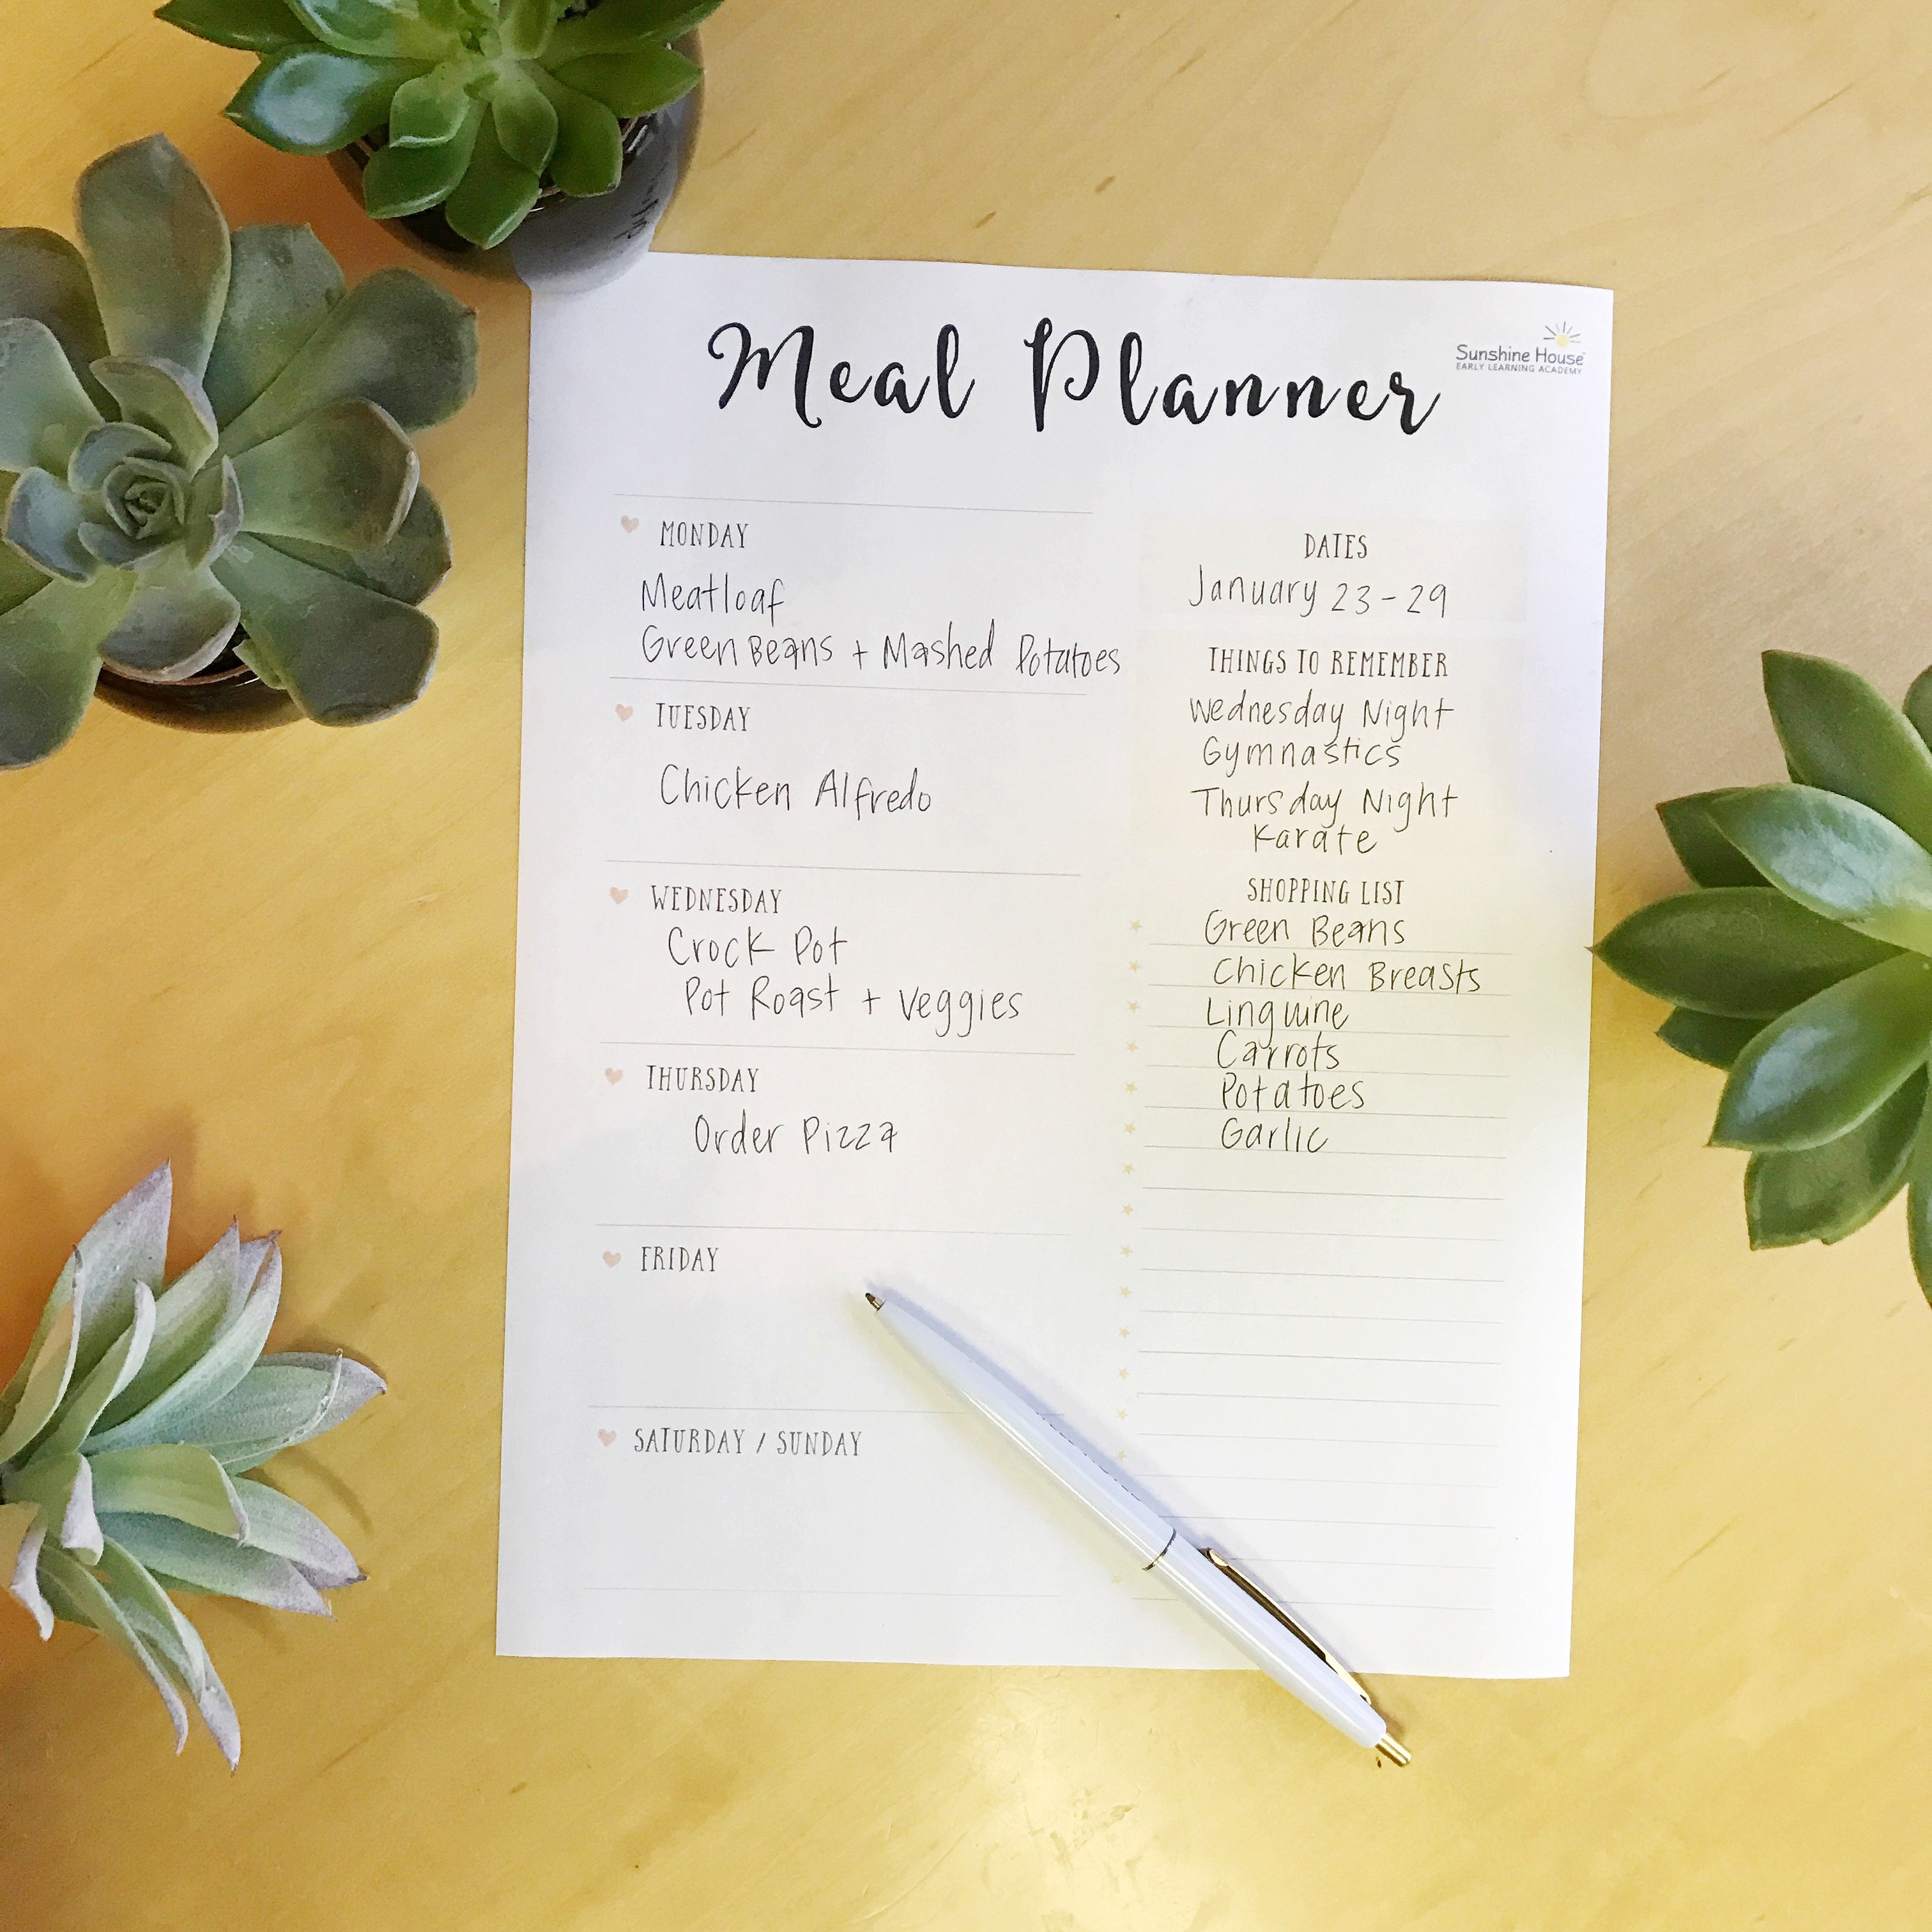 Meal Planner
Sunshine House
EARLY LEARNING ACADEMY
MONDAY
Meatloaf
Green Beans + Mashed Potatoes
TUESDAY
Chicken Alfredo
WEDNESDAY
Crock Pot
Pot Roast + Veggies
THURSDAY
Order Pizza
FRIDAY
SATURDAY / SUNDAY
DATES
January 23-29
THINGS TO REMEMBER
Wednesday Night
Gymnastics
Thursday Night
Karate
SHOPPING LIST
Green Beans
Chicken Breasts
Linguine
Carrots
Potatoes
Garlic